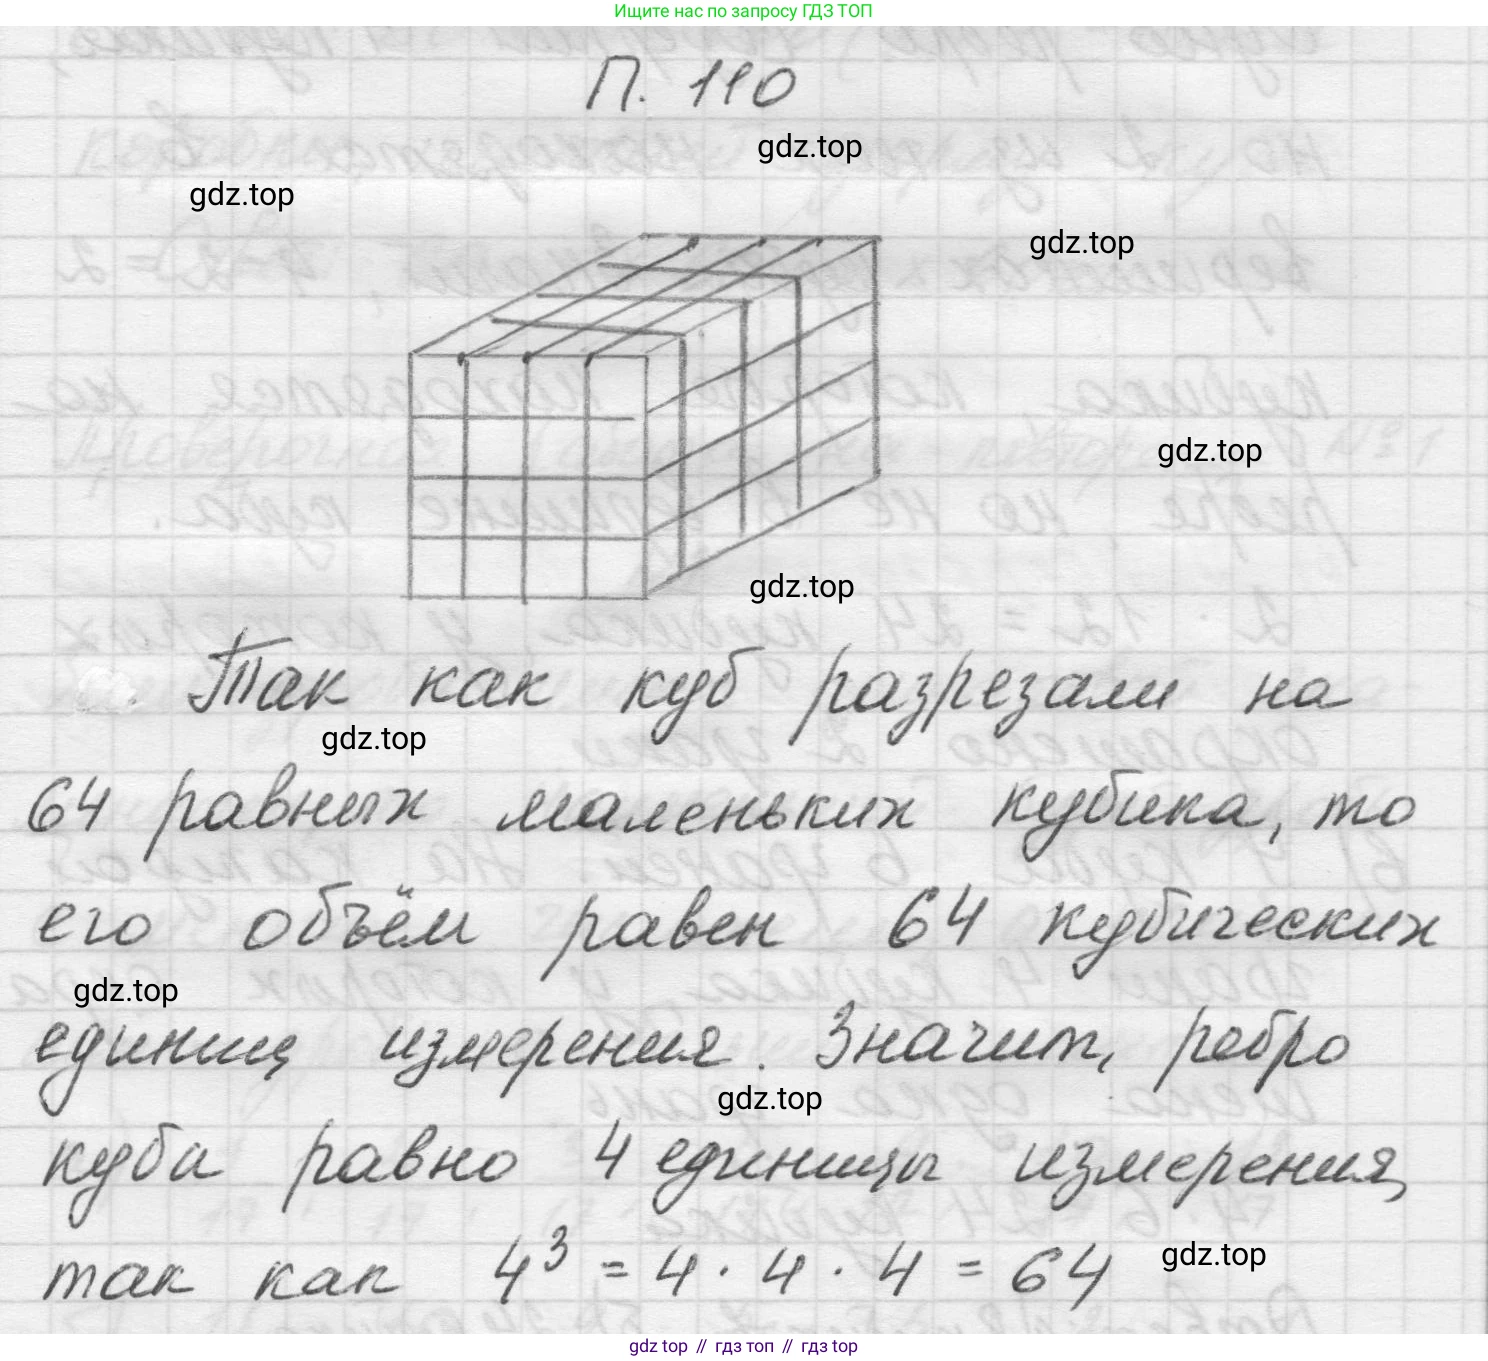 Ищите нас по запросу ГДЗ ТОП
П. 110
gdz.top
gdz.top
gdz.top
gdz.top
gdz.top
Так как куб разрезали на
gdz.top
64 равных маленьких кубика, то
его объём равен 64 кубических
gdz.top
единиц измерения. Значит, ребро
gdz.top
куба равно 4 единицы измерения,
так как 4³ = 4 · 4 · 4 = 64
gdz.top
gdz top // гдз топ // гдз top